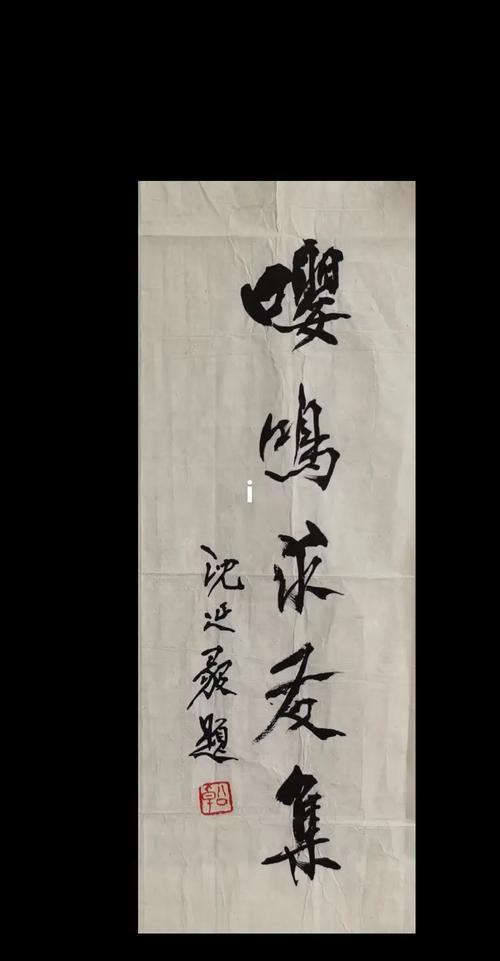 嚶鳴求友集
沈延毅題
i